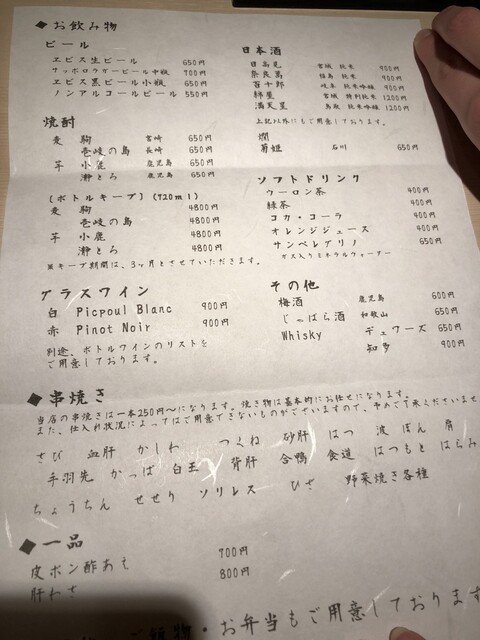 ◆お飲み物
ビール
ヱビス生ビール 650円
サッポロラガービール中瓶 700円
ヱビス黒ビール小瓶 650円
ノンアルコールビール 550円
焼酎
麦 駒 宮崎 650円
壱岐の島 長崎 650円
芋 小鹿 鹿児島 650円
瀞とろ 鹿児島 650円
(ボトルキープ)(720ml)
麦 駒 4800円
壱岐の島 4800円
芋 小鹿 4800円
瀞とろ 4800円
※キープ期間は、3ヶ月とさせていただきます。
グラスワイン
白 Picpoul Blanc 900円
赤 Pinot Noir 900円
別途、ボトルワインのリストを
ご用意しております。
日本酒
日高見 宮城 純米 900円
奈良萬 福島 純米 900円
百十郎 岐阜 純米吟醸 1000円
綿屋 宮城 特別純米 1200円
満天星 鳥取 純米吟醸 1200円
上記以外にもご用意しております。
燗
菊姫 石川 650円
ソフトドリンク
ウーロン茶 400円
緑茶 400円
コカ・コーラ 400円
オレンジジュース 400円
サンペレグリノ 650円
ガス入りミネラルウォーター
その他
梅酒 鹿児島 600円
じゃばら酒 和歌山 650円
Whisky デュワーズ 650円
知多 900円
◆串焼き
当店の串焼きは一本250円〜になります。焼き物は基本的にお任せになります。
また、仕入れ状況によってはご用意できないものがございますので、予めご了承くださいませ
さび 血肝 かしわ つくね 砂肝 はつ 波 ぼん 肩
手羽先 かっぱ 白玉 背肝 合鴨 食道 はつもと はらみ
ちょうちん せせり ソリレス ひざ 野菜焼き各種
◆一品
皮ポン酢あえ 700円
肝わさ 800円
・お弁当もご用意しております